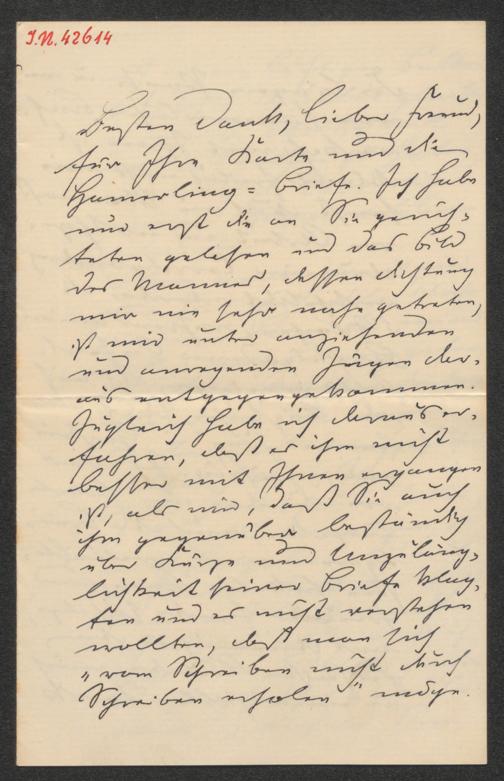 I.N. 42614
Besten Dank, lieber Freund,
für Ihre Karte und die
Hamerling-Briefe. Ich habe
nun erst die an Sie gerich-
teten gelesen und das Bild
des Mannes, dessen Dichtung
mir nie sehr nahe getreten,
ist mir unter anziehenden
und anregenden Zügen dar-
aus entgegengekommen.
Zugleich habe ich daraus er-
fahren, daß es ihm nicht
besser mit Ihnen ergangen
ist, als mir, daß Sie auch
ihm gegenüber beständig
über Kürze und Unzuläng-
lichkeit seiner Briefe klag-
ten und es nicht verstehen
wollten, daß man sich
"vom Schreiben nicht durch
Schreiben erholen" möge.